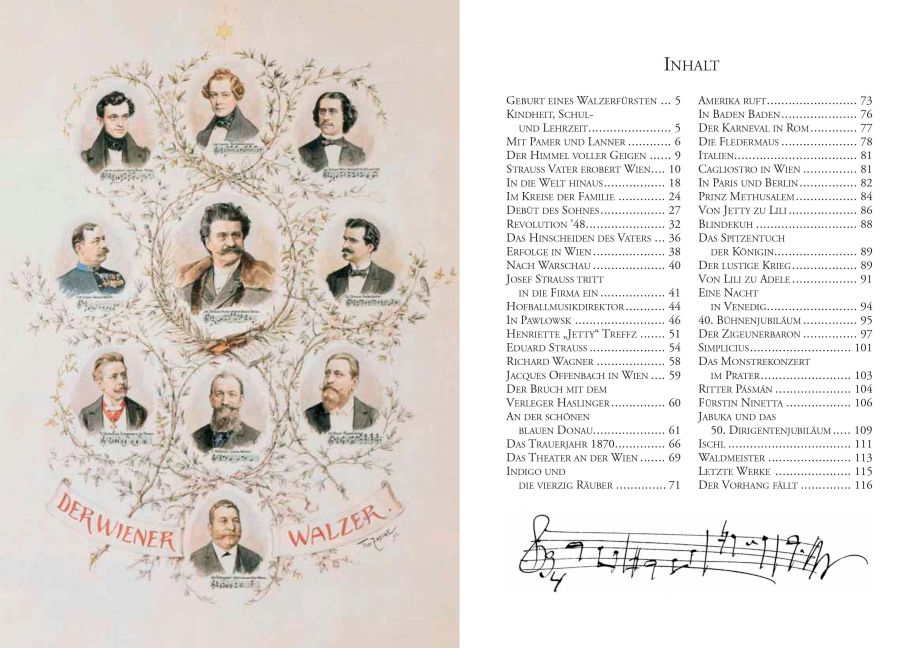 DER WIENER WALZER.
INHALT
GEBURT EINES WALZERFÜRSTEN ... 5
KINDHEIT, SCHUL-
UND LEHRZEIT....................... 5
MIT PAMER UND LANNER ............. 6
DER HIMMEL VOLLER GEIGEN ...... 9
STRAUSS VATER EROBERT WIEN.... 10
IN DIE WELT HINAUS................. 18
IM KREISE DER FAMILIE ............. 24
DEBÜT DES SOHNES.................. 27
REVOLUTION '48...................... 32
DAS HINSCHEIDEN DES VATERS ... 36
ERFOLGE IN WIEN.................... 38
NACH WARSCHAU .................... 40
JOSEF STRAUSS TRITT
IN DIE FIRMA EIN .................. 41
HOFBALLMUSIKDIREKTOR........... 44
IN PAWLOWSK ....................... 46
HENRIETTE „JETTY“ TREFFZ ....... 51
EDUARD STRAUSS ..................... 54
RICHARD WAGNER ................... 58
JACQUES OFFENBACH IN WIEN .... 59
DER BRUCH MIT DEM
VERLEGER HASLINGER............... 60
AN DER SCHÖNEN
BLAUEN DONAU..................... 61
DAS TRAUERJAHR 1870.............. 66
DAS THEATER AN DER WIEN ....... 69
INDIGO UND
DIE VIERZIG RÄUBER .............. 71
AMERIKA RUFT......................... 73
IN BADEN BADEN..................... 76
DER KARNEVAL IN ROM............. 77
DIE FLEDERMAUS ..................... 78
ITALIEN.................................. 81
CAGLIOSTRO IN WIEN ............... 81
IN PARIS UND BERLIN................ 82
PRINZ METHUSALEM................. 84
VON JETTY ZU LILI................... 86
BLINDEKUH ............................ 88
DAS SPITZENTUCH
DER KÖNIGIN....................... 89
DER LUSTIGE KRIEG.................. 89
VON LILI ZU ADELE .................. 91
EINE NACHT
IN VENEDIG......................... 94
40. BÜHNENJUBILÄUM ............... 95
DER ZIGEUNERBARON ............... 97
SIMPLICIUS............................ 101
DAS MONSTREKONZERT
IM PRATER......................... 103
RITTER PÁSMÁN ..................... 104
FÜRSTIN NINETTA .................. 106
JABUKA UND DAS
50. DIRIGENTENJUBILÄUM ..... 109
ISCHL .................................. 111
WALDMEISTER ....................... 113
LETZTE WERKE ..................... 115
DER VORHANG FÄLLT .............. 116